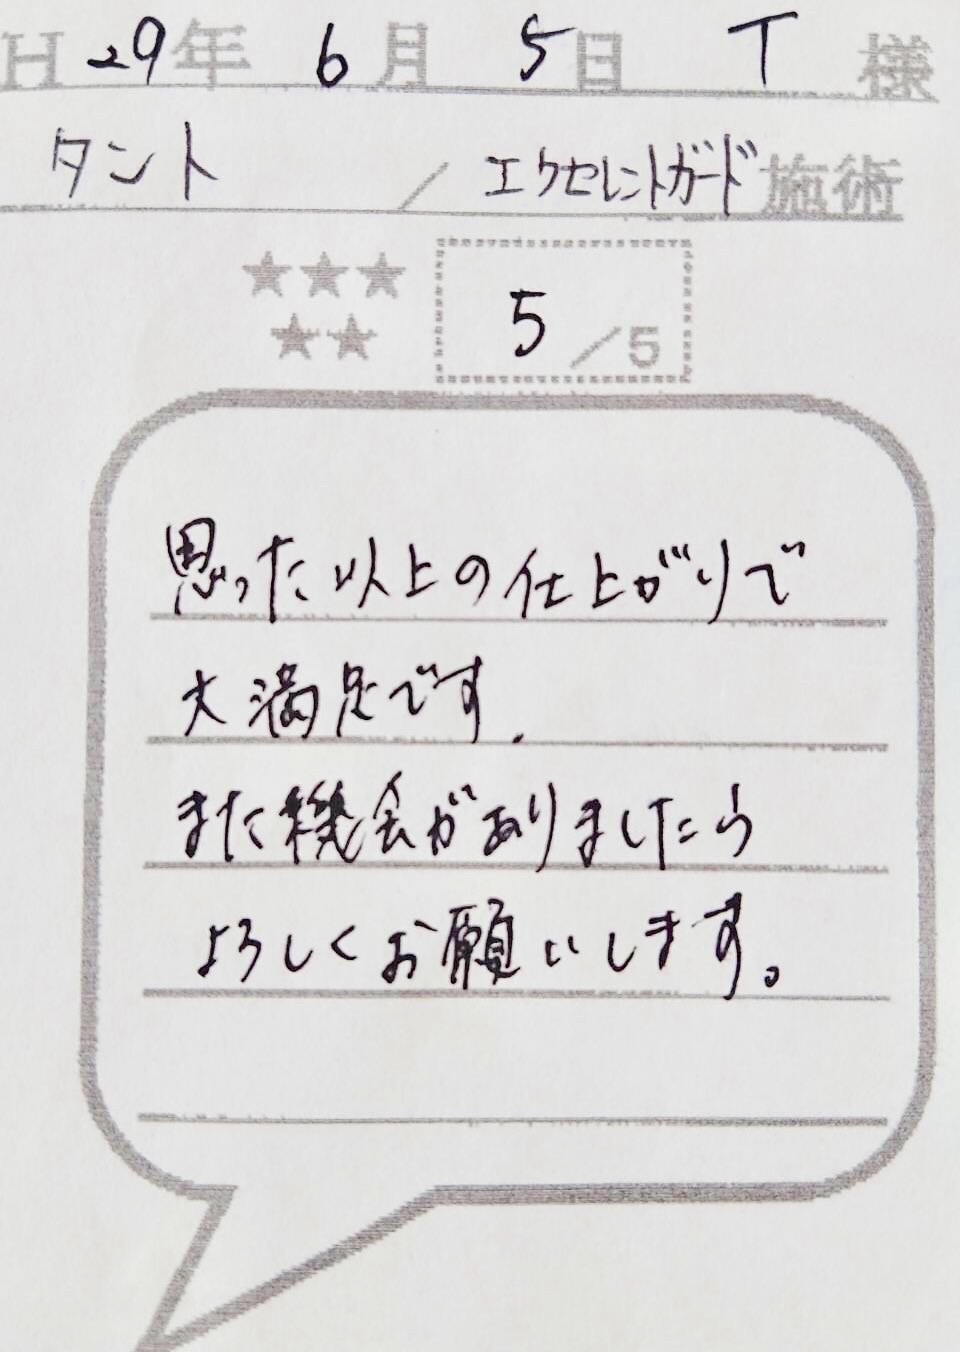 H 29年 6月 5日 T 様
タント / エクセレントガード施術
★★★
★★
5/5
思った以上の仕上がりで
大満足です.
また機会がありましたら
よろしくお願いします。